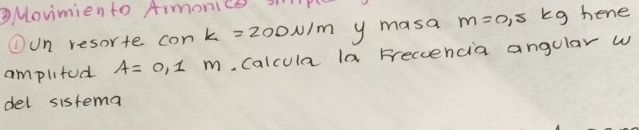 ③ Movimiento Armonico
① Un resorte con k = 200N/m y masa m=0,5 kg tiene
amplitud A= 0,1 m. Calcula la Frecuencia angular w
del sistema